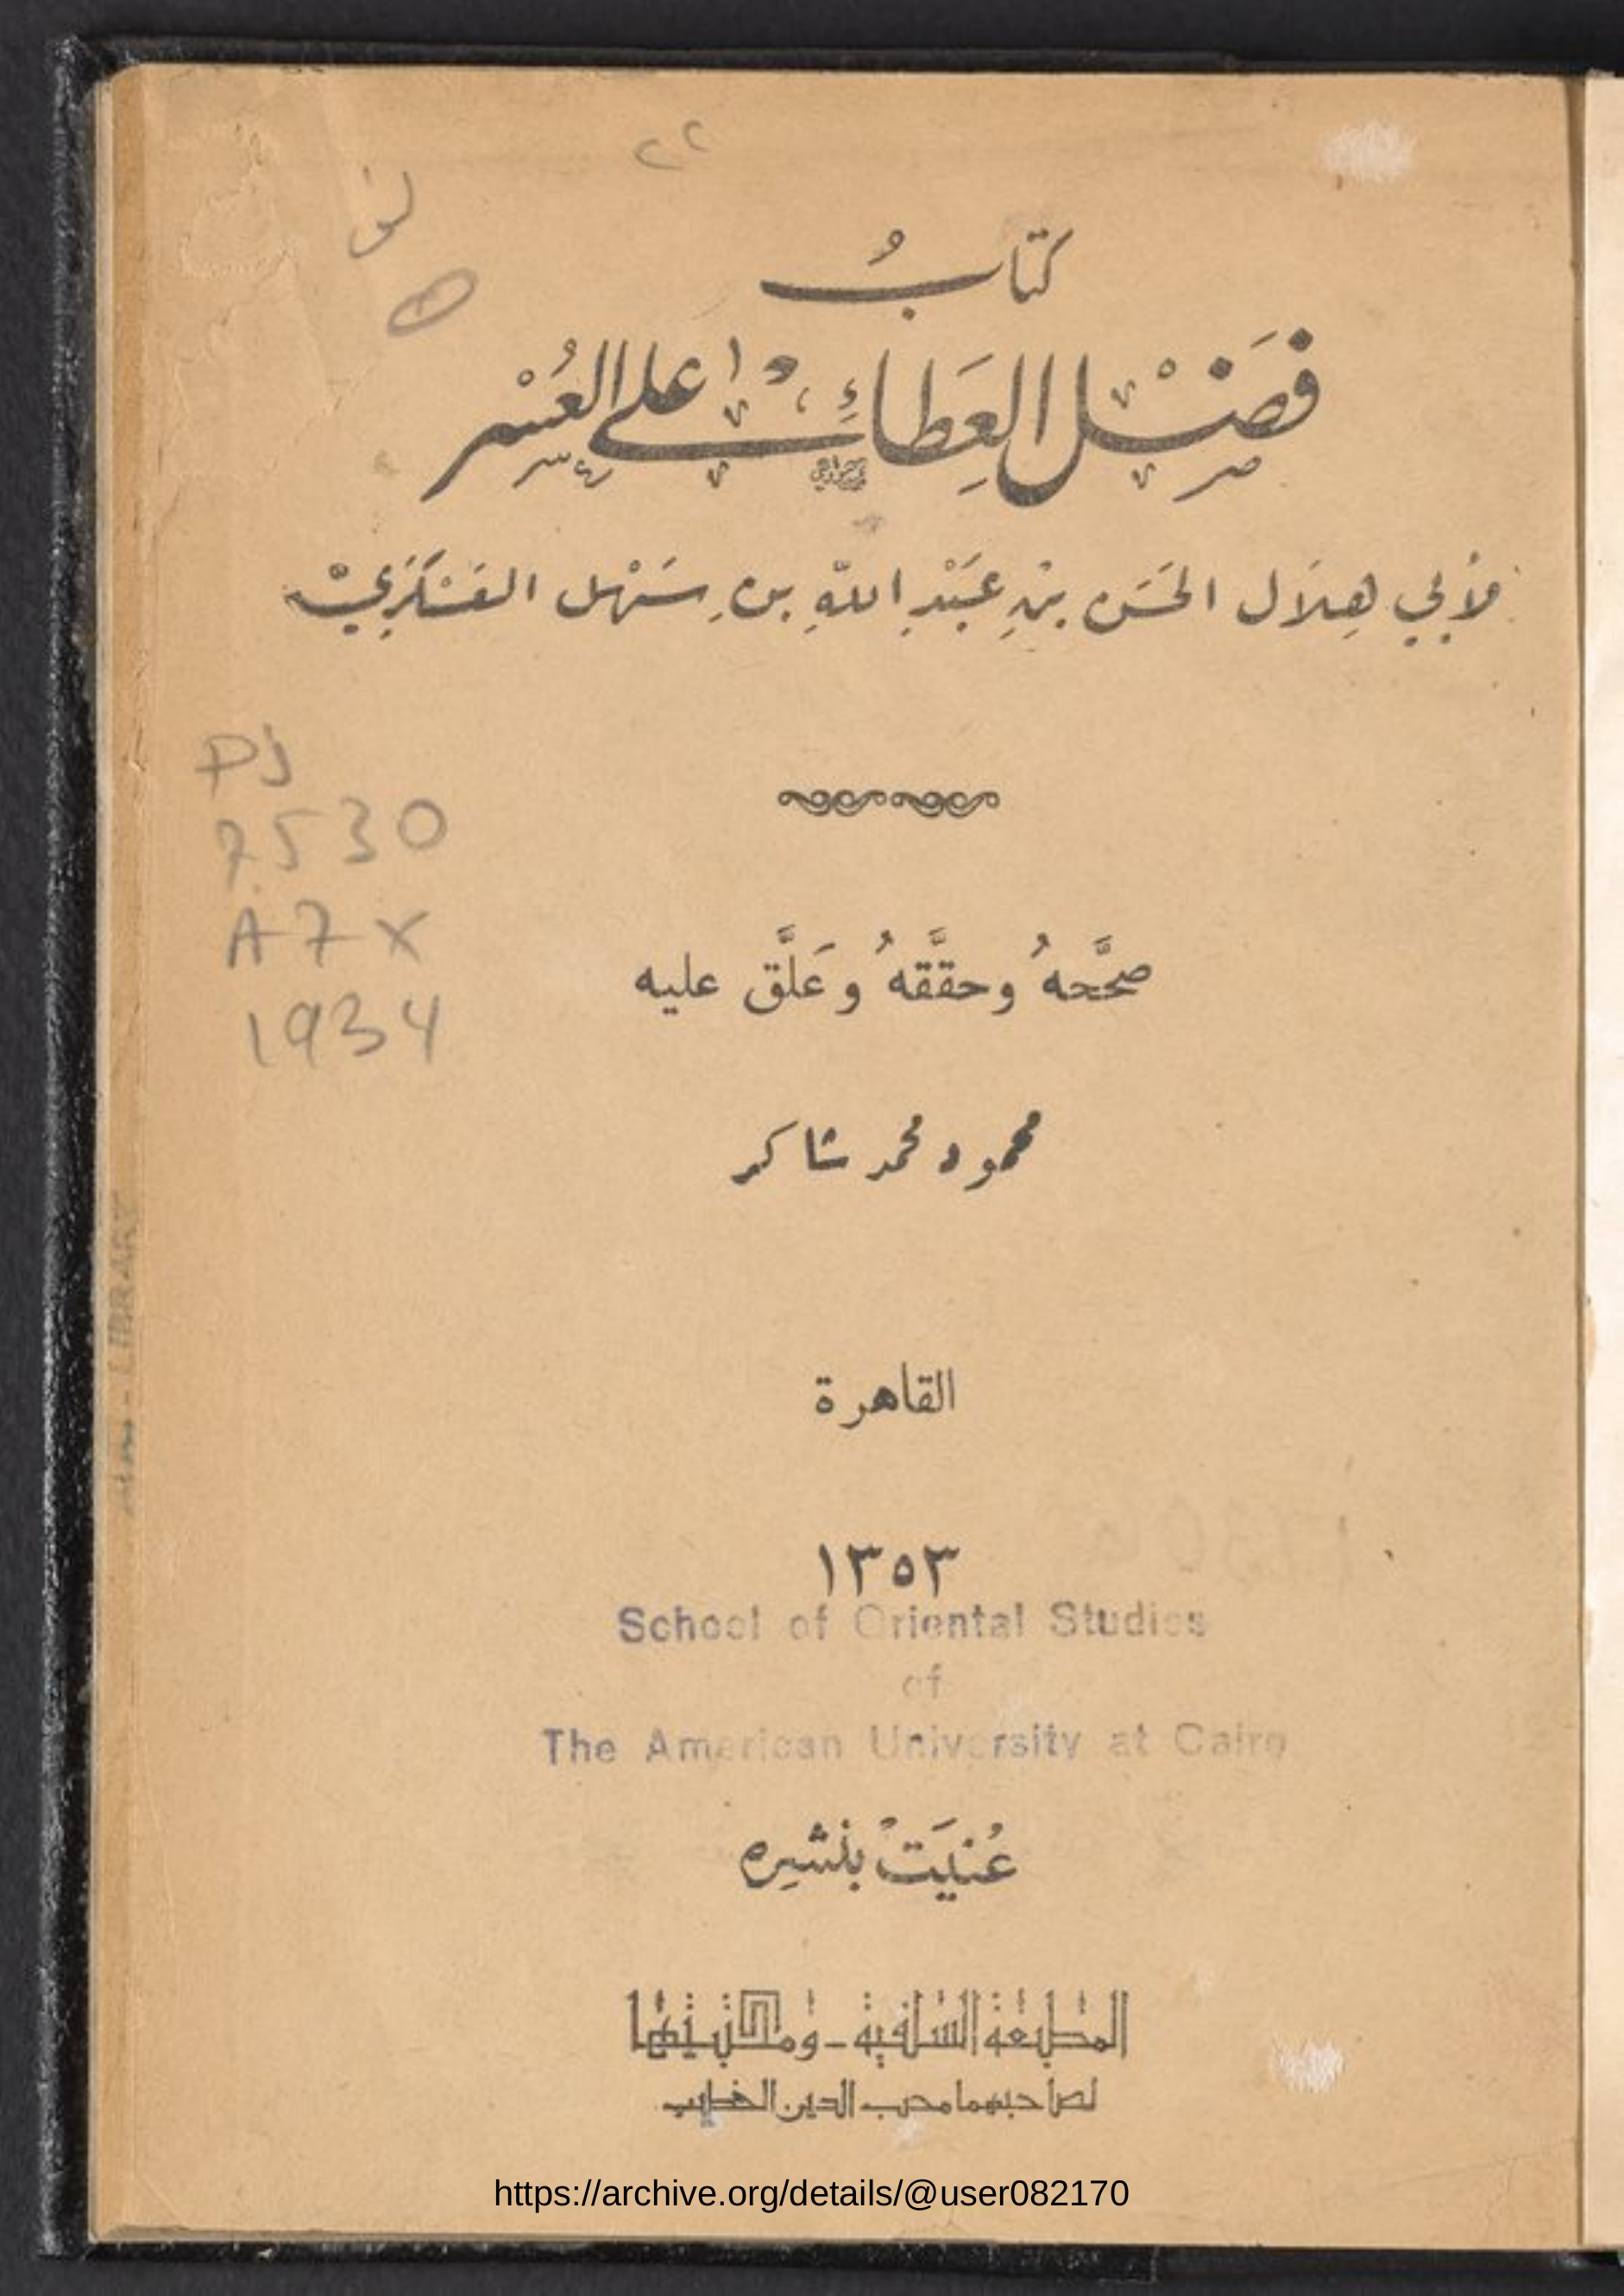 ٢٢
كتابُ
فَصْل العَطاءِ على العُسْر
لأبي هِلَال الحَسَن بْنِ عَبْدِ اللهِ بن سَهْل العَسْكَرِيّ
PJ
7530
A7X
1934
صحَّحهُ وحقَّقهُ وعَلَّق عليه
محمود محمد شاكر
القاهرة
١٣٥٣
School of Oriental Studies
of
The American University at Cairo
عُنيَتْ بنشرِه
المطبعة السلفية - ومكتبتها
لصاحبهما محب الدين الخطيب
https://archive.org/details/@user082170